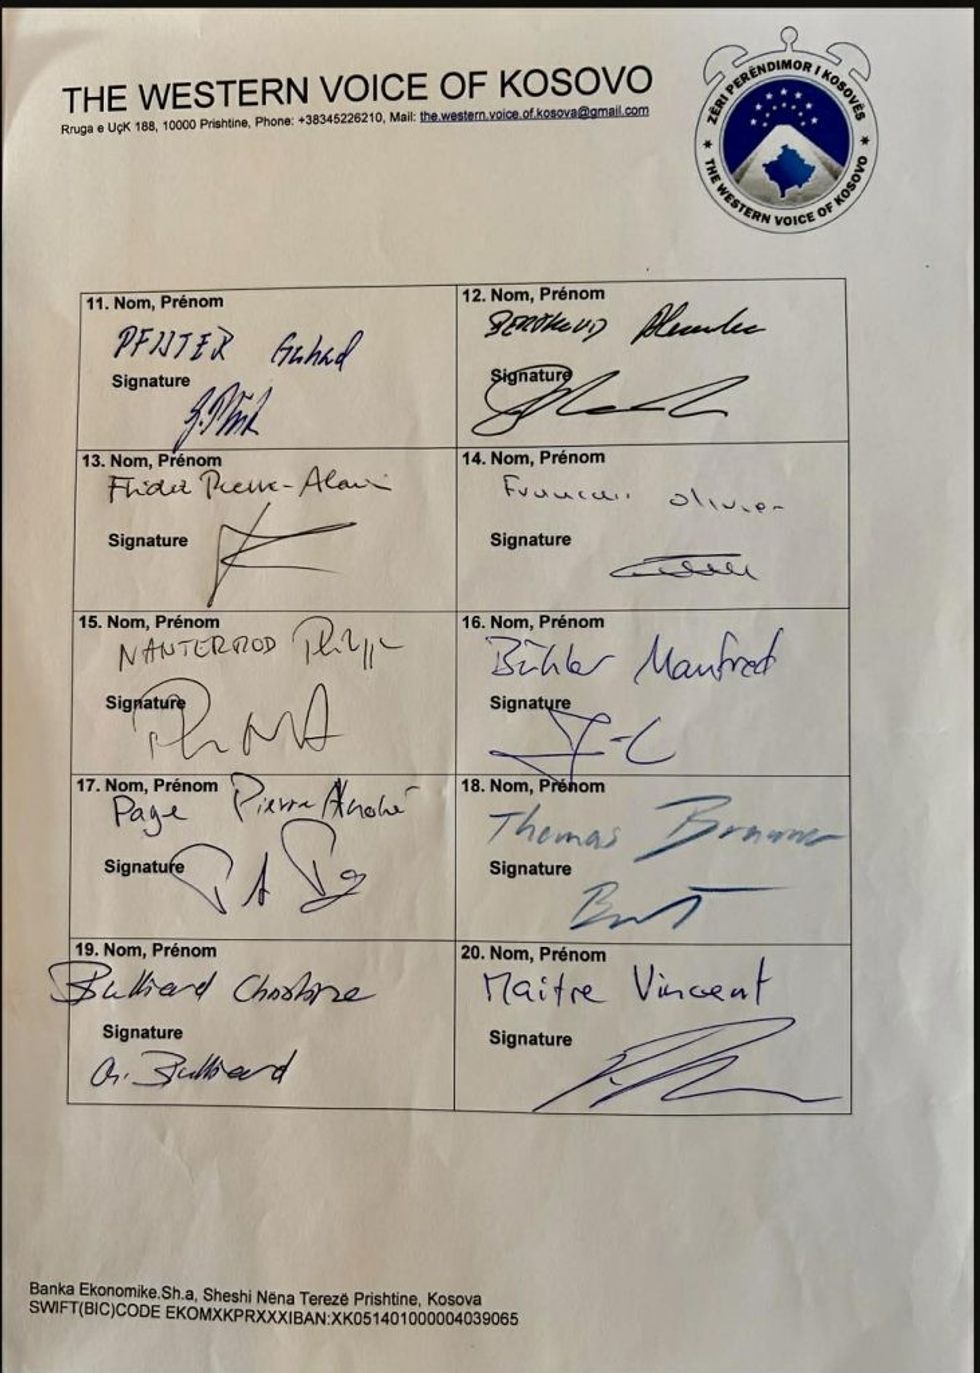 THE WESTERN VOICE OF KOSOVO
Rruga e UçK 188, 10000 Prishtine, Phone: +38345226210, Mail: the.western.voice.of.kosova@gmail.com
ZËRI PERËNDIMOR I KOSOVËS
* THE WESTERN VOICE OF KOSOVO *
11. Nom, Prénom
PFISTER Gerhard
Signature
12. Nom, Prénom
Signature
13. Nom, Prénom
Pierre-Alain
Signature
14. Nom, Prénom
Olivier
Signature
15. Nom, Prénom
NANTERMOD Philippe
Signature
16. Nom, Prénom
Bühler Manfred
Signature
17. Nom, Prénom
Page Pierre-André
Signature
18. Nom, Prénom
Thomas
Signature
19. Nom, Prénom
Bulliard Christine
Signature
C. Bulliard
20. Nom, Prénom
Maitre Vincent
Signature
Banka Ekonomike.Sh.a, Sheshi Nëna Terezë Prishtine, Kosova
SWIFT(BIC)CODE EKOMXKPRXXXIBAN:XK051401000004039065